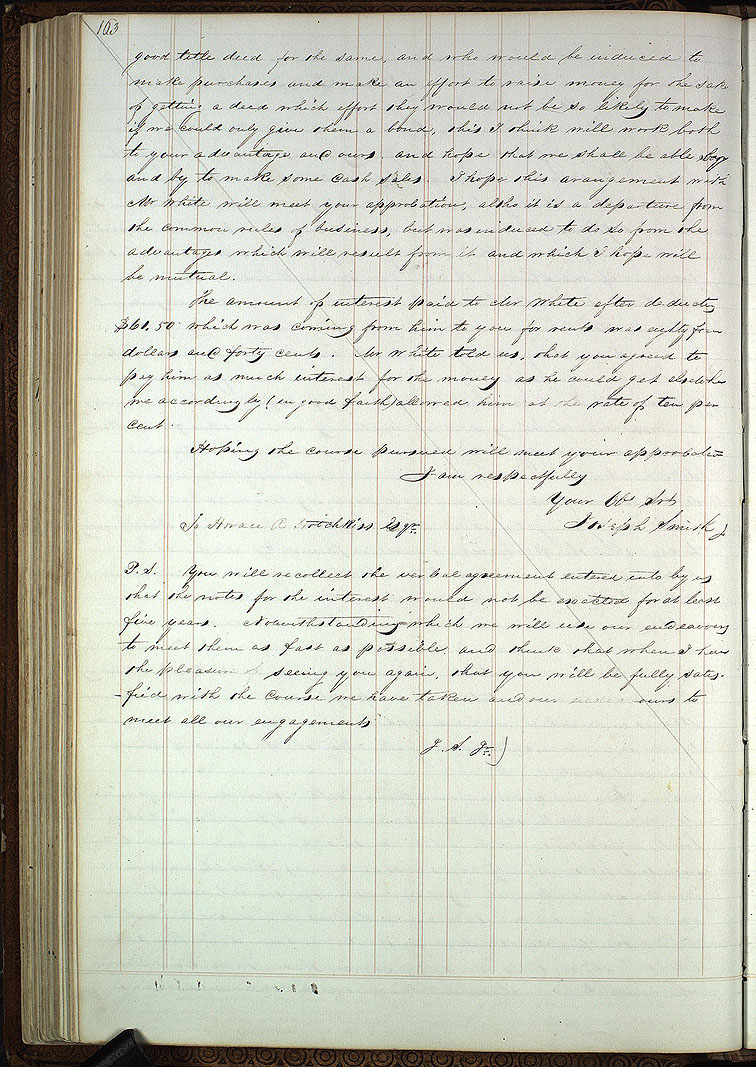 103
good title deed for the same, and who would be induced to
make purchases and make an effort to raise money for the sake
of getting a deed which effort they would not be so likely to make
if we could only give them a bond, this I think will work both
to your advantage and ours. and hope that we shall be able by
and by to make some cash sales. I hope this arangement with
Mr White will meet your approbation, altho it is a departure from
the common rules of business, but was induced to do so from the
advantages which will result from it and which I hope will
be mutual.
The amount of interest paid to Mr White after deducting
$61.50 which was coming from him to you for rents was eighty four
dollars and forty cents. Mr White told us, that you agreed to
pay him as much interest for the money as he could get elsewhere
we accordingly (in good faith) allowed him at the rate of ten per
cent
Hoping the course pursued will meet your approbation
I am respectfully
Your Ob Svt
To Horace R. Hotchkiss Esqr. Joseph Smith J
P.S. You will recollect the verbal agreement entered into by us
that the notes for the interest would not be exacted for at least
five years. Nowithstanding which we will use our endeavors
to meet them as fast as possible, and think that when I have
the pleasure of seeing you again, that you will be fully satis-
-fied with the course we have taken and our endeavours to
meet all our engagements
J. S. Jr.)